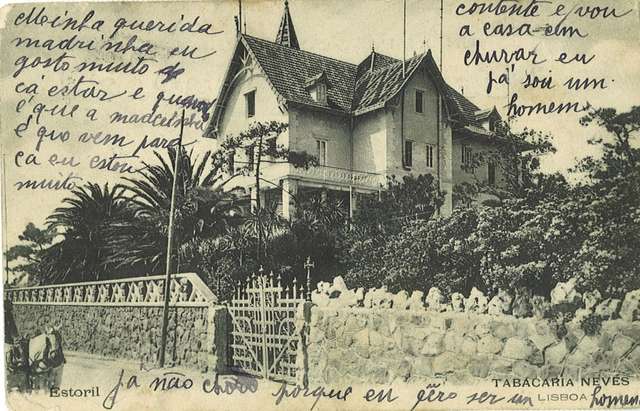 Minha querida
madrinha eu
gosto muito de
cá estar e
é que a
é que vem para
cá eu estou
muito
contente e vou
a casa em
churar eu
já soi um
homem
Estoril
TABACARIA NEVES
LISBOA
Já não choro porque eu qero ser un homem